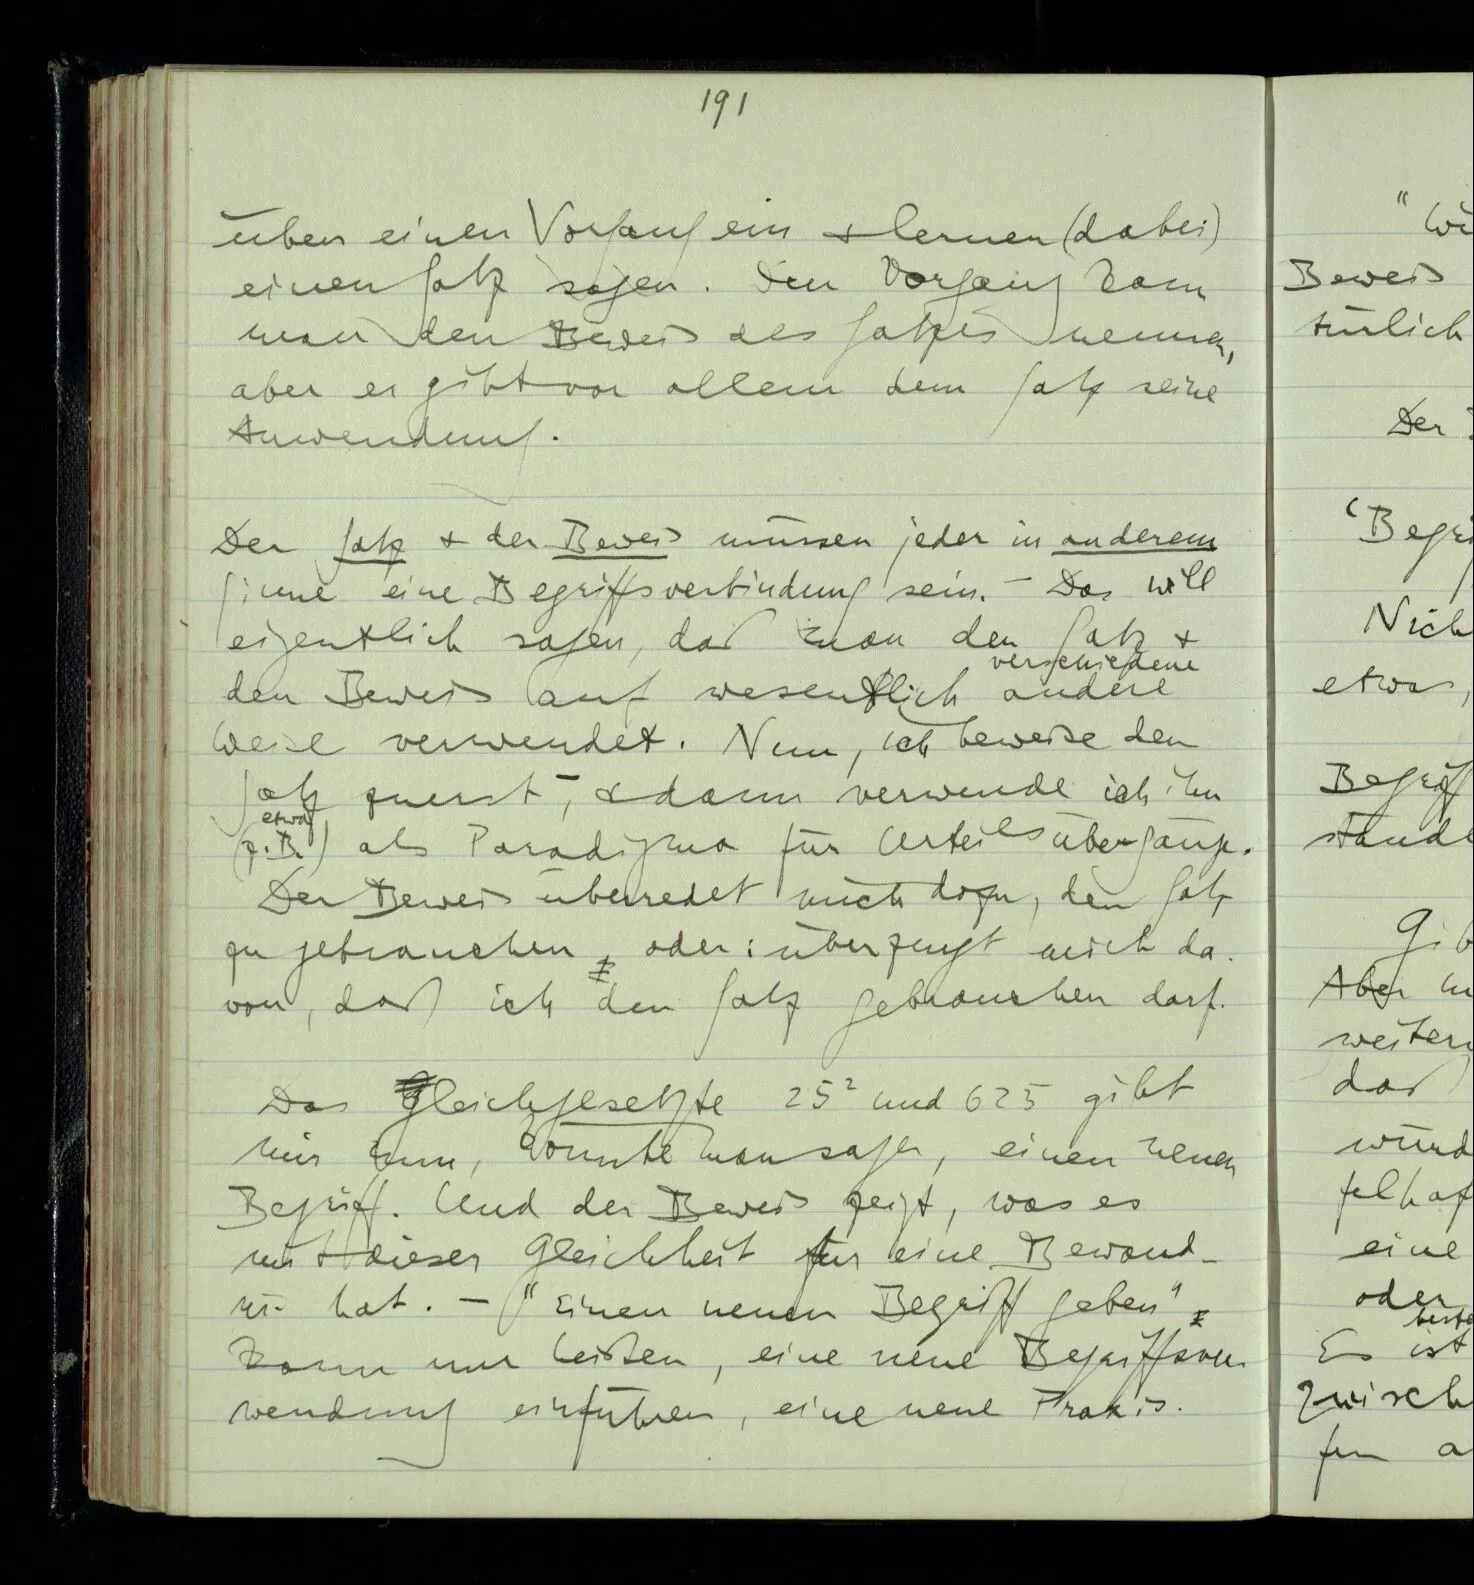 191
üben einen Vorgang ein & lernen (dabei)
einen Satz sagen. Den Vorgang kann
man den Beweis des Satzes nennen,
aber er gibt vor allem dem Satz seine
Anwendung.
Der Satz & der Beweis müssen jeder in anderem
Sinne eine Begriffsverbindung sein. – Das will
eigentlich sagen, daß man den Satz &
verschiedene
den Beweis auf wesentlich andere
Weise verwendet. Nun, ich beweise den
Satz zuerst, & dann verwende ich ihn
etwa
(z.B.) als Paradigma für Urteilsübergänge.
Der Beweis überredet mich dazu, den Satz
zu gebrauchen, oder: überzeugt mich da-
von, daß ich den Satz gebrauchen darf.
Das Gleichgesetzte 25² und 625 gibt
mir nun, könnte man sagen, einen neuen
Begriff. Und der Beweis zeigt, was es
mit dieser Gleichheit für eine Bewand-
nis hat. – "Einen neuen Begriff geben"
kann nur heißen, eine neue Begriffsver
wendung einführen, eine neue Praxis.
Beweis
türlich
Der
Nich
etwas,
Begriff
Gib
Aber
weitern
daß
würd
eine
oder
Es ist
zwisch